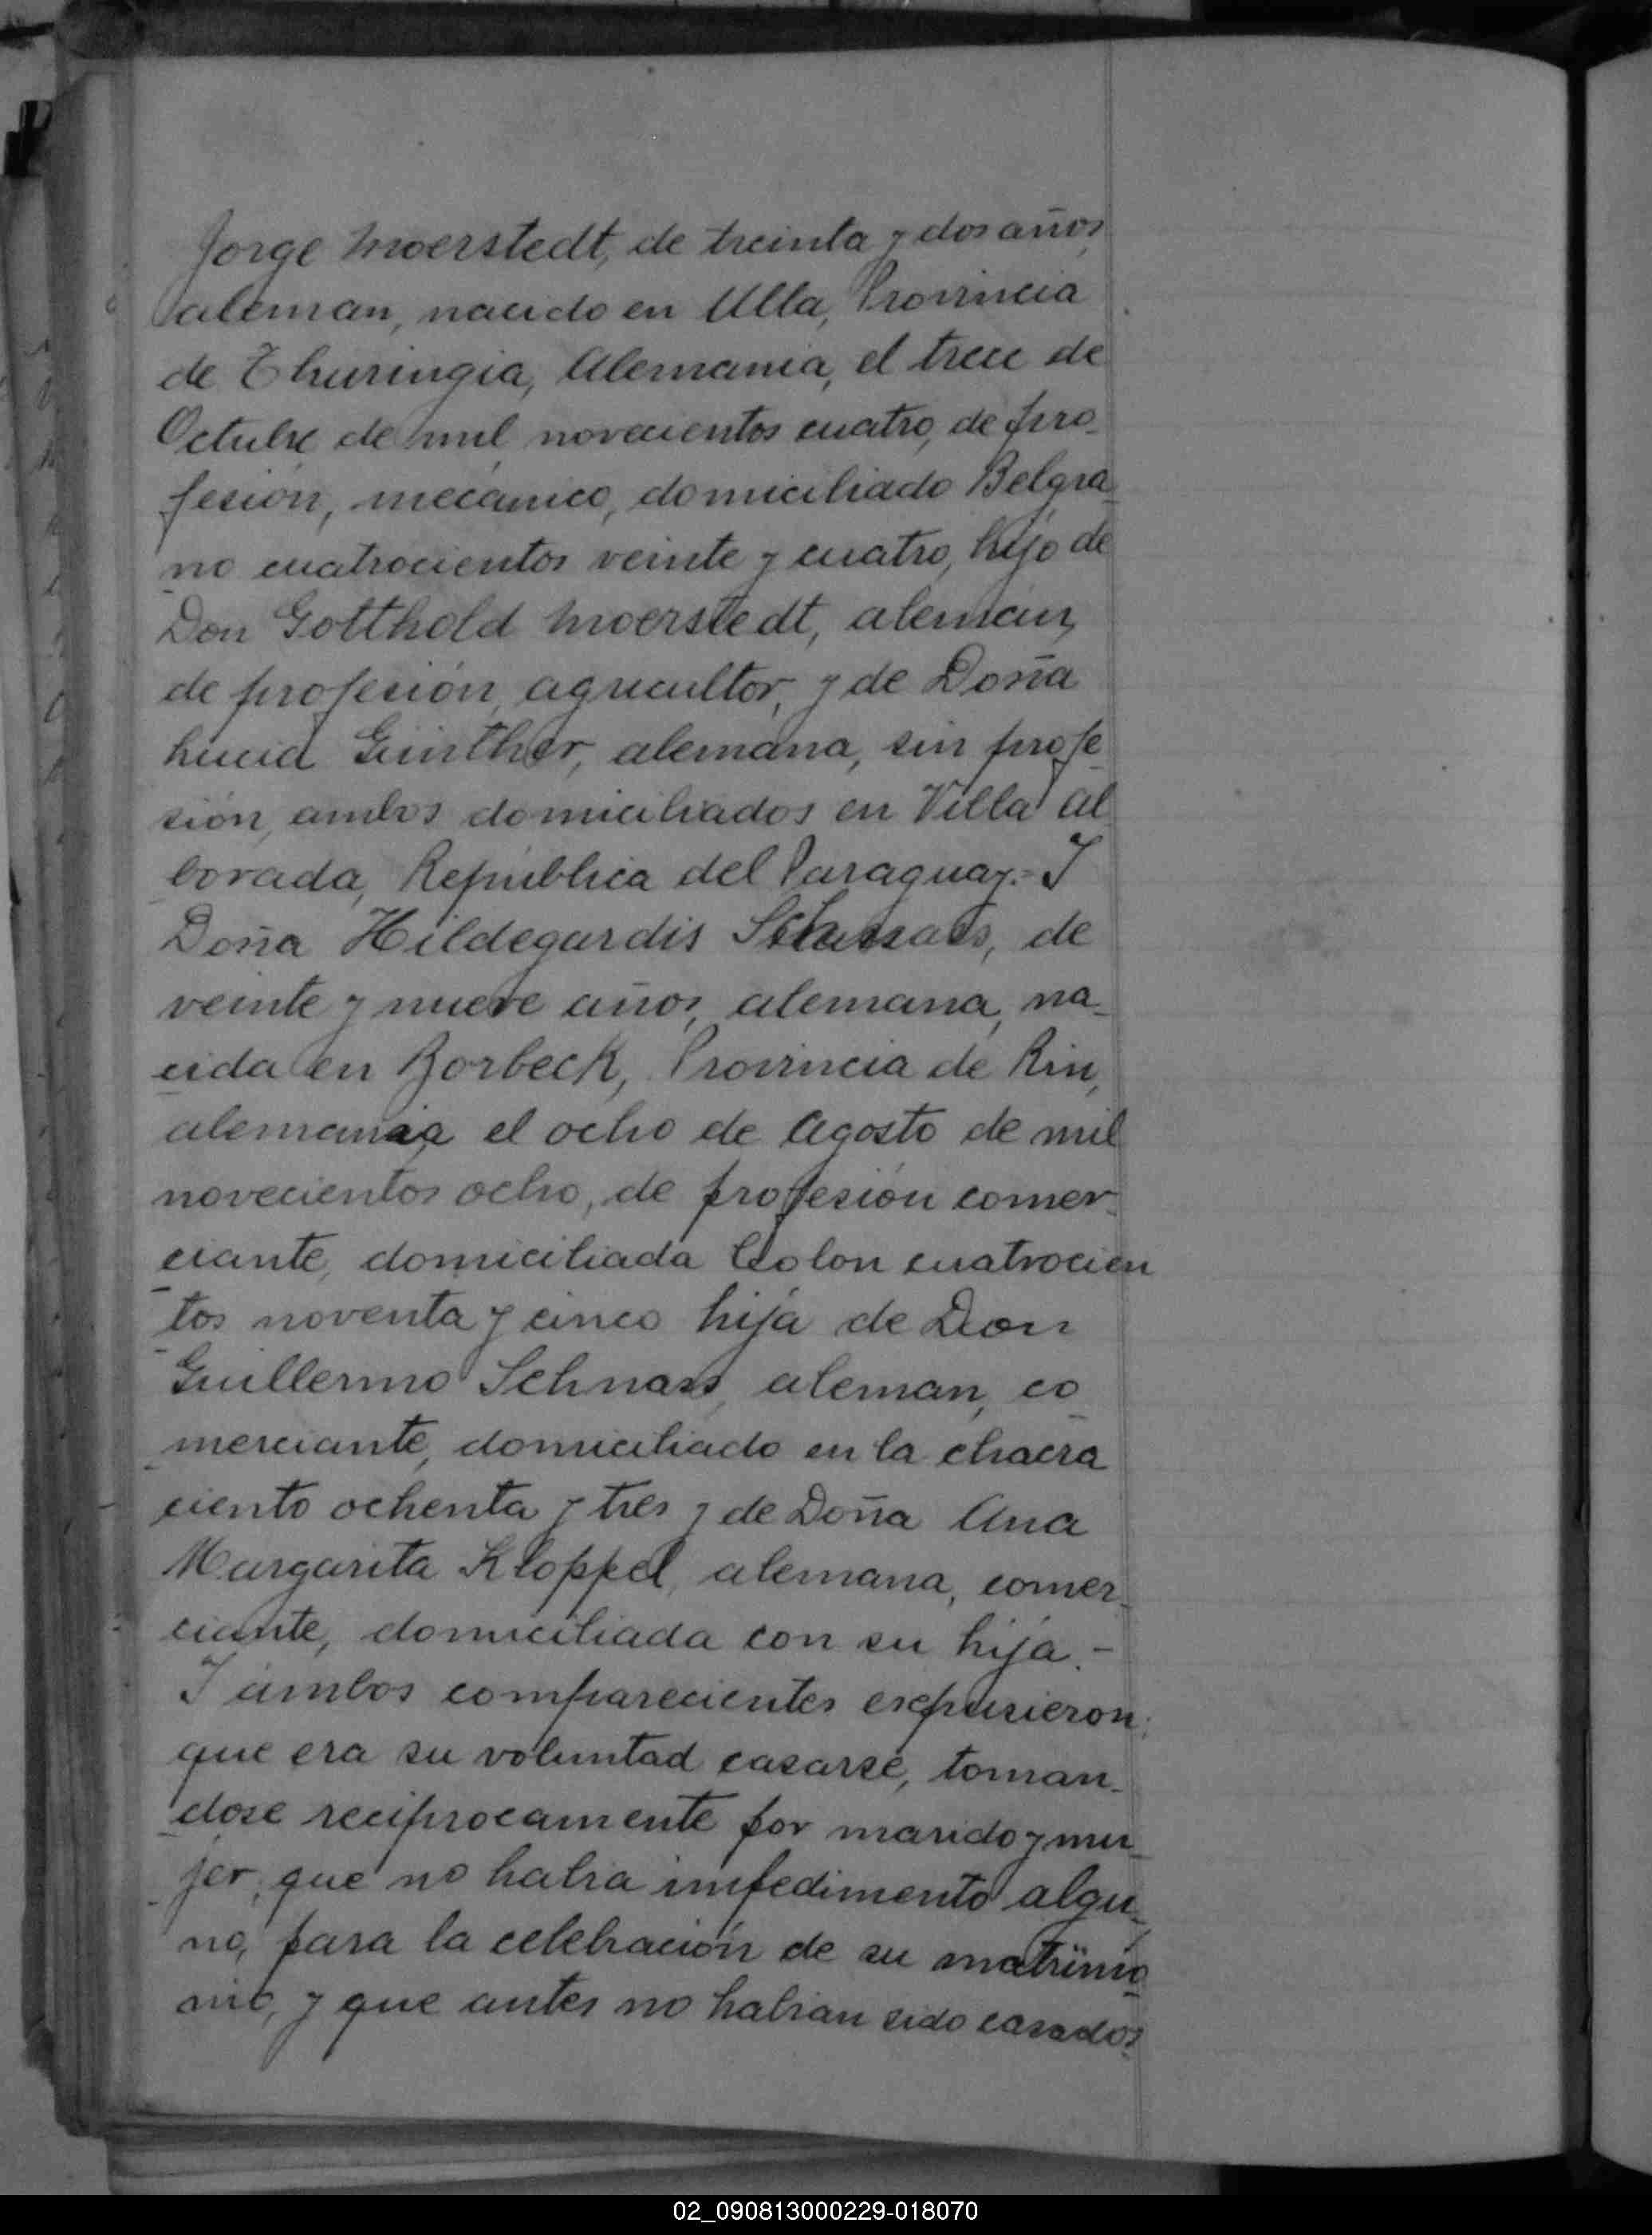 Jorge Moerstedt, de treinta y dos años,
aleman, nacido en Ulla, Provincia
de Thuringia, Alemania, el trece de
Octubre de mil novecientos cuatro, de pro-
fesión, mecánico, domiciliado Belgra-
no cuatrocientos veinte y cuatro, hijo de
Don Gotthold Moerstedt, alemán,
de profesión, agricultor, y de Doña
Lucia Günther, alemana, sin profe-
sión, ambos domiciliados en Villa Al-
borada, República del Paraguay.- Y
Doña Hildegardis Schnass, de
veinte y nueve años, alemana, na-
cida en Borbeck, Provincia de Rin,
alemania el ocho de Agosto de mil
novecientos ocho, de profesión comer-
ciante, domiciliada Colon cuatrocien
tos noventa y cinco hija de Don
Guillermo Schnass, aleman, co-
merciante, domiciliado en la chacra
ciento ochenta y tres y de Doña Ana
Margarita Kloppel, alemana, comer-
ciante, domiciliada con su hija.-
Y ambos comparecientes expusieron:
que era su voluntad casarse, toman-
dose reciprocamente por marido y mu-
jer, que no habia impedimento algu-
no, para la celebración de su matrimo-
nio, y que antes no habian sido casados.
02_090813000229-018070